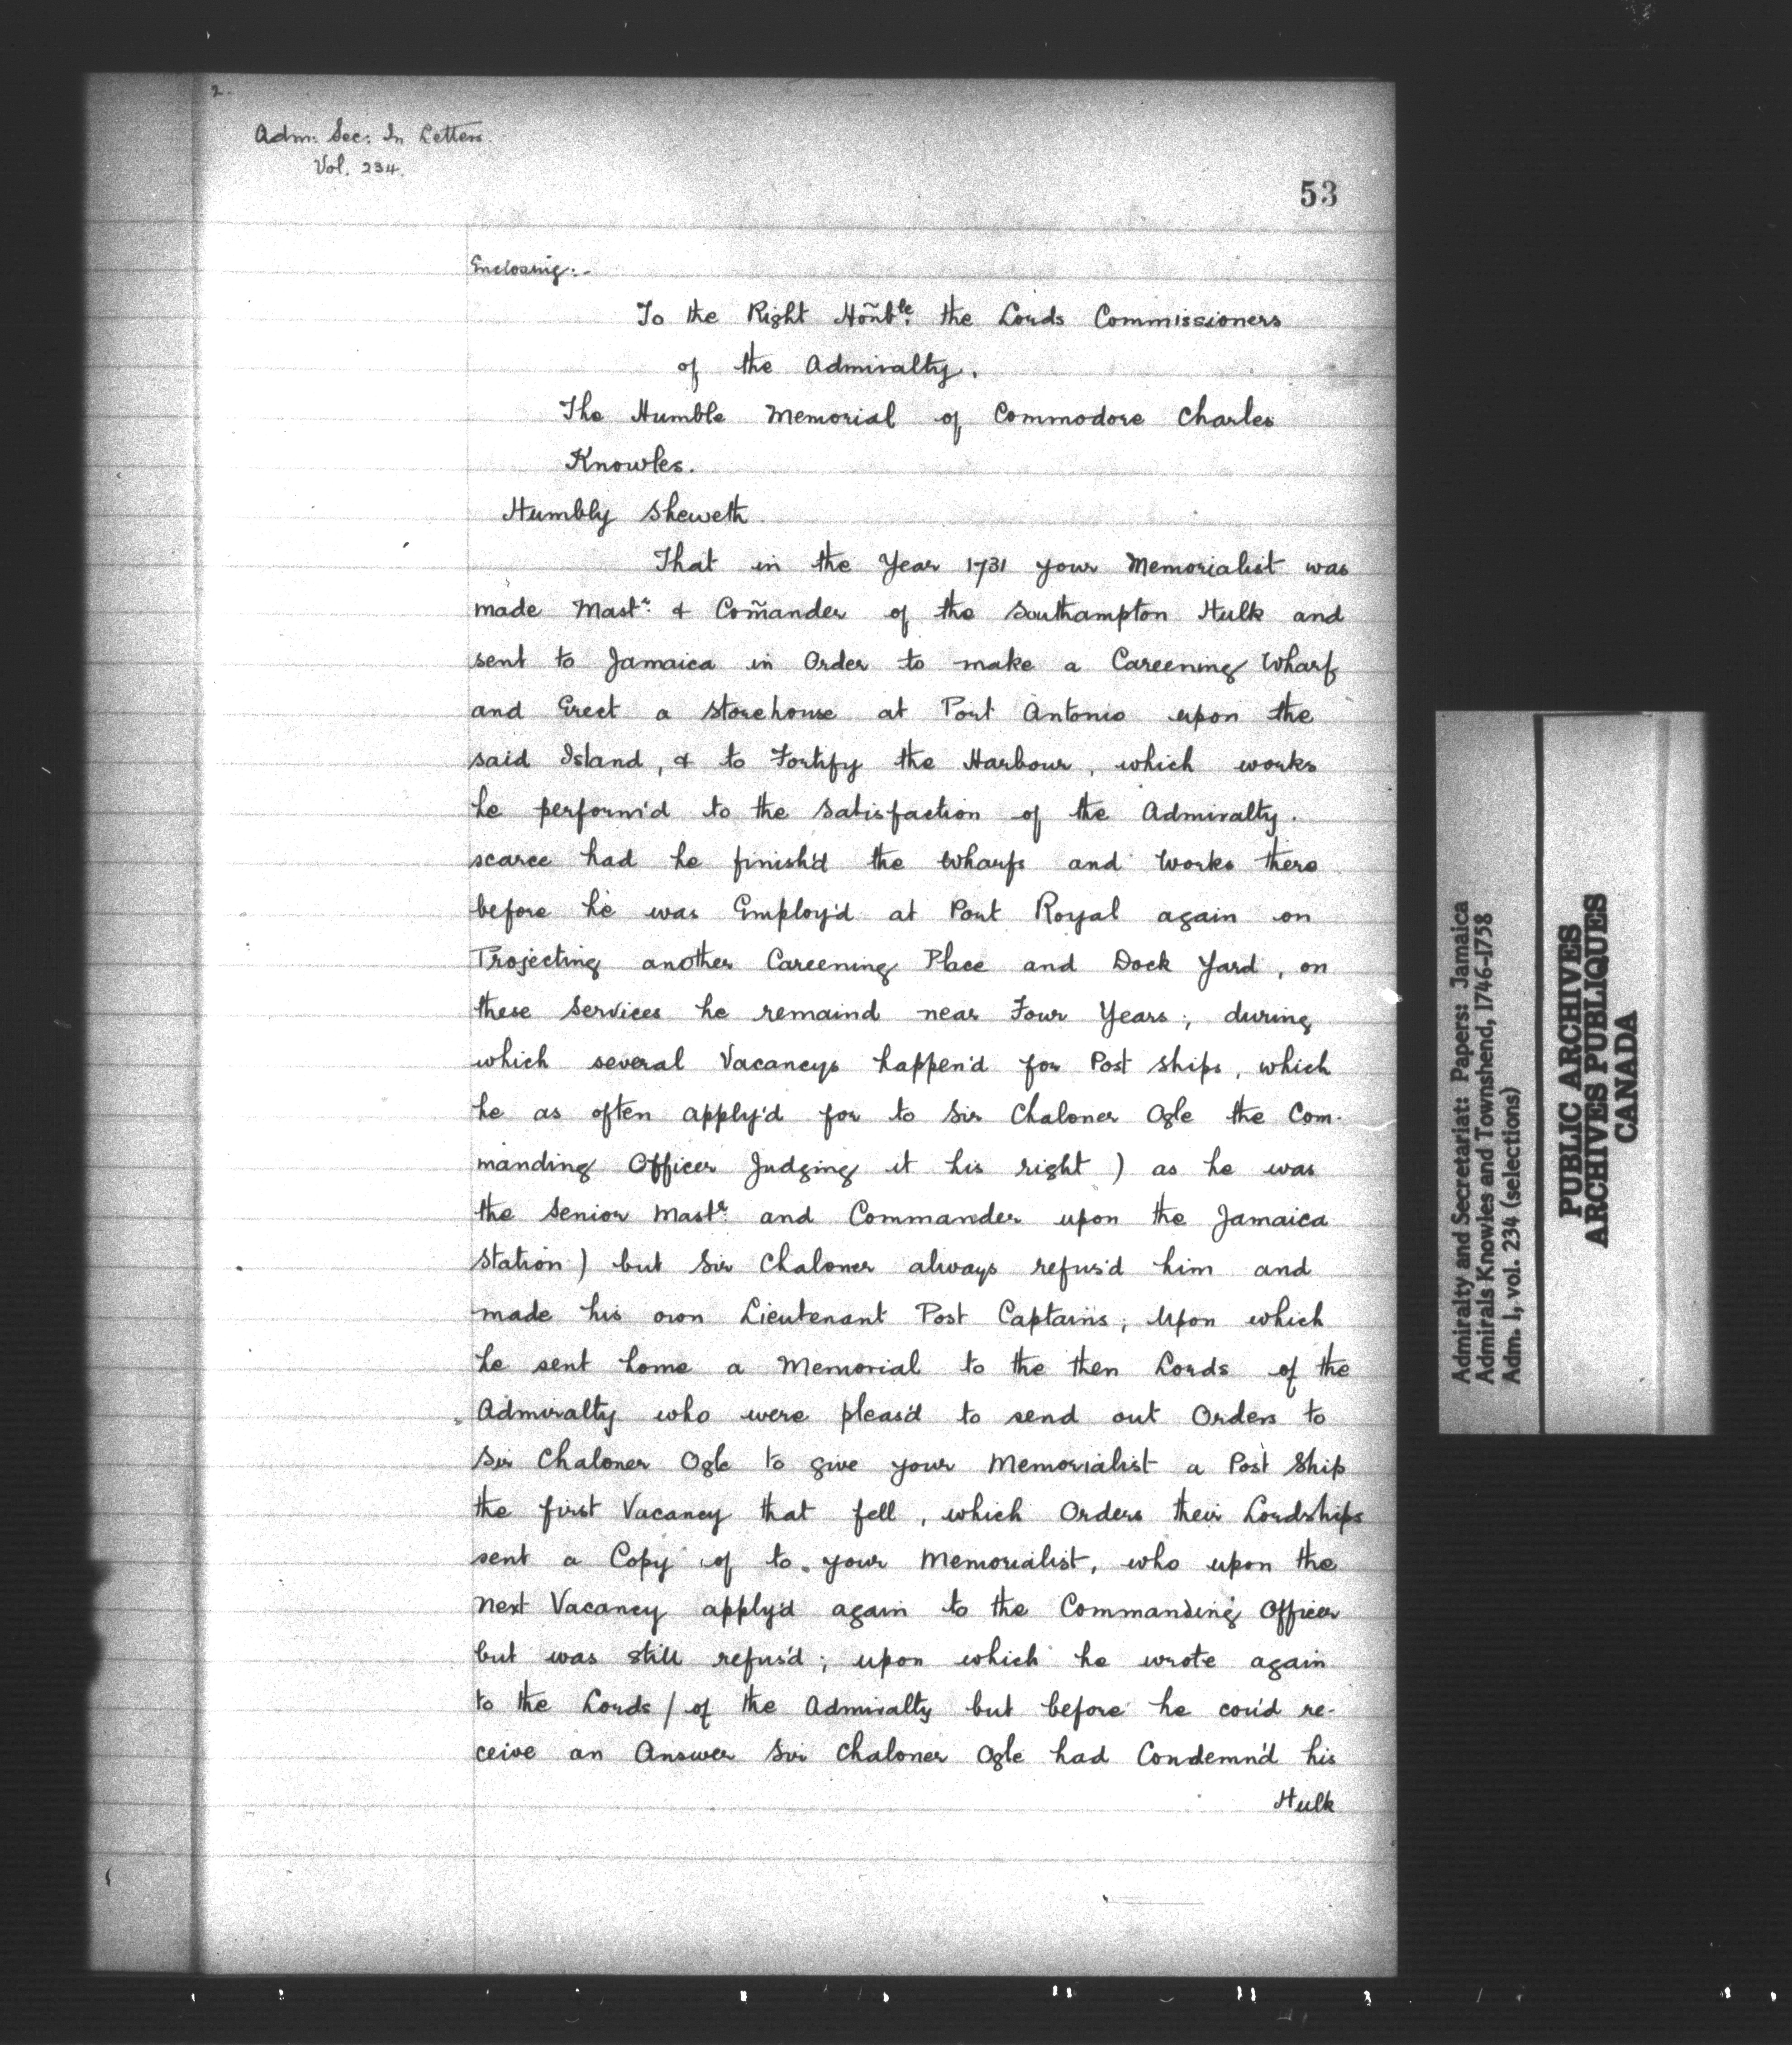 2.
Adm: Sec: In Letters.
Vol. 234.
53
Enclosing:-
To the Right Hoñble. the Lords Commissioners
of the Admiralty.
The Humble Memorial of Commodore Charles
Knowles.
Humbly Sheweth
That in the Year 1731 your Memorialist was
made Mastr. & Com̃ander of the Southampton Hulk and
sent to Jamaica in Order to make a Careening Wharf
and Erect a Storehouse at Port Antonio upon the
said Island, & to Fortify the Harbour, which works
he perform'd to the Satisfaction of the Admiralty.
scarce had he finish'd the Wharfs and Works there
before he was Employ'd at Port Royal again on
Projecting another Careening Place and Dock Yard, on
these Services he remaind near Four Years; during
which several Vacancys happen'd for Post Ships, which
he as often apply'd for to Sir Chaloner Ogle the Com-
manding Officer Judging it his right) as he was
the Senior Mastr. and Commander upon the Jamaica
Station) but Sir Chaloner always refus'd him and
made his own Lieutenant Post Captains; Upon which
he sent home a Memorial to the then Lords of the
Admiralty who were pleas'd to send out Orders to
Sir Chaloner Ogle to give your Memorialist a Post Ship
the first Vacancy that fell, which Orders their Lordships
sent a Copy of to your Memorialist, who upon the
next Vacancy apply'd again to the Commanding Officer
but was still refus'd; upon which he wrote again
to the Lords / of the Admiralty but before he cou'd re-
ceive an Answer Sir Chaloner Ogle had Condemn'd his
Hulk
Admiralty and Secretariat: Papers: Jamaica
Admirals Knowles and Townshend, 1746-1758
Adm. 1, vol. 234 (selections)
PUBLIC ARCHIVES
ARCHIVES PUBLIQUES
CANADA